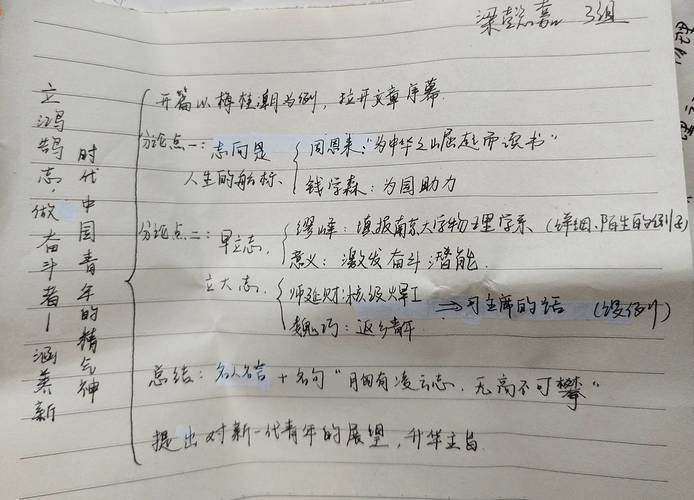 梁懿嘉 3组
立鸿鹄志·做奋斗者—涵养新
时代中国青年的精气神
开篇以梅桂潮为例，拉开文章序幕
分论点一：志向是
人生的航标、
周恩来："为中华之崛起而读书"
钱学森：为国助力
分论点二：早立志，
缪峰：填报南京大学物理学系（详细、陌生的例子）
意义：激发奋斗潜能.
立大志、
师延财：核级焊工
⇒习主席的话（缓例升）
魏巧：返乡青年
总结：名人名言 + 名句"胸有凌云志，无高不可攀"
提出对新一代青年的展望，升华主旨.